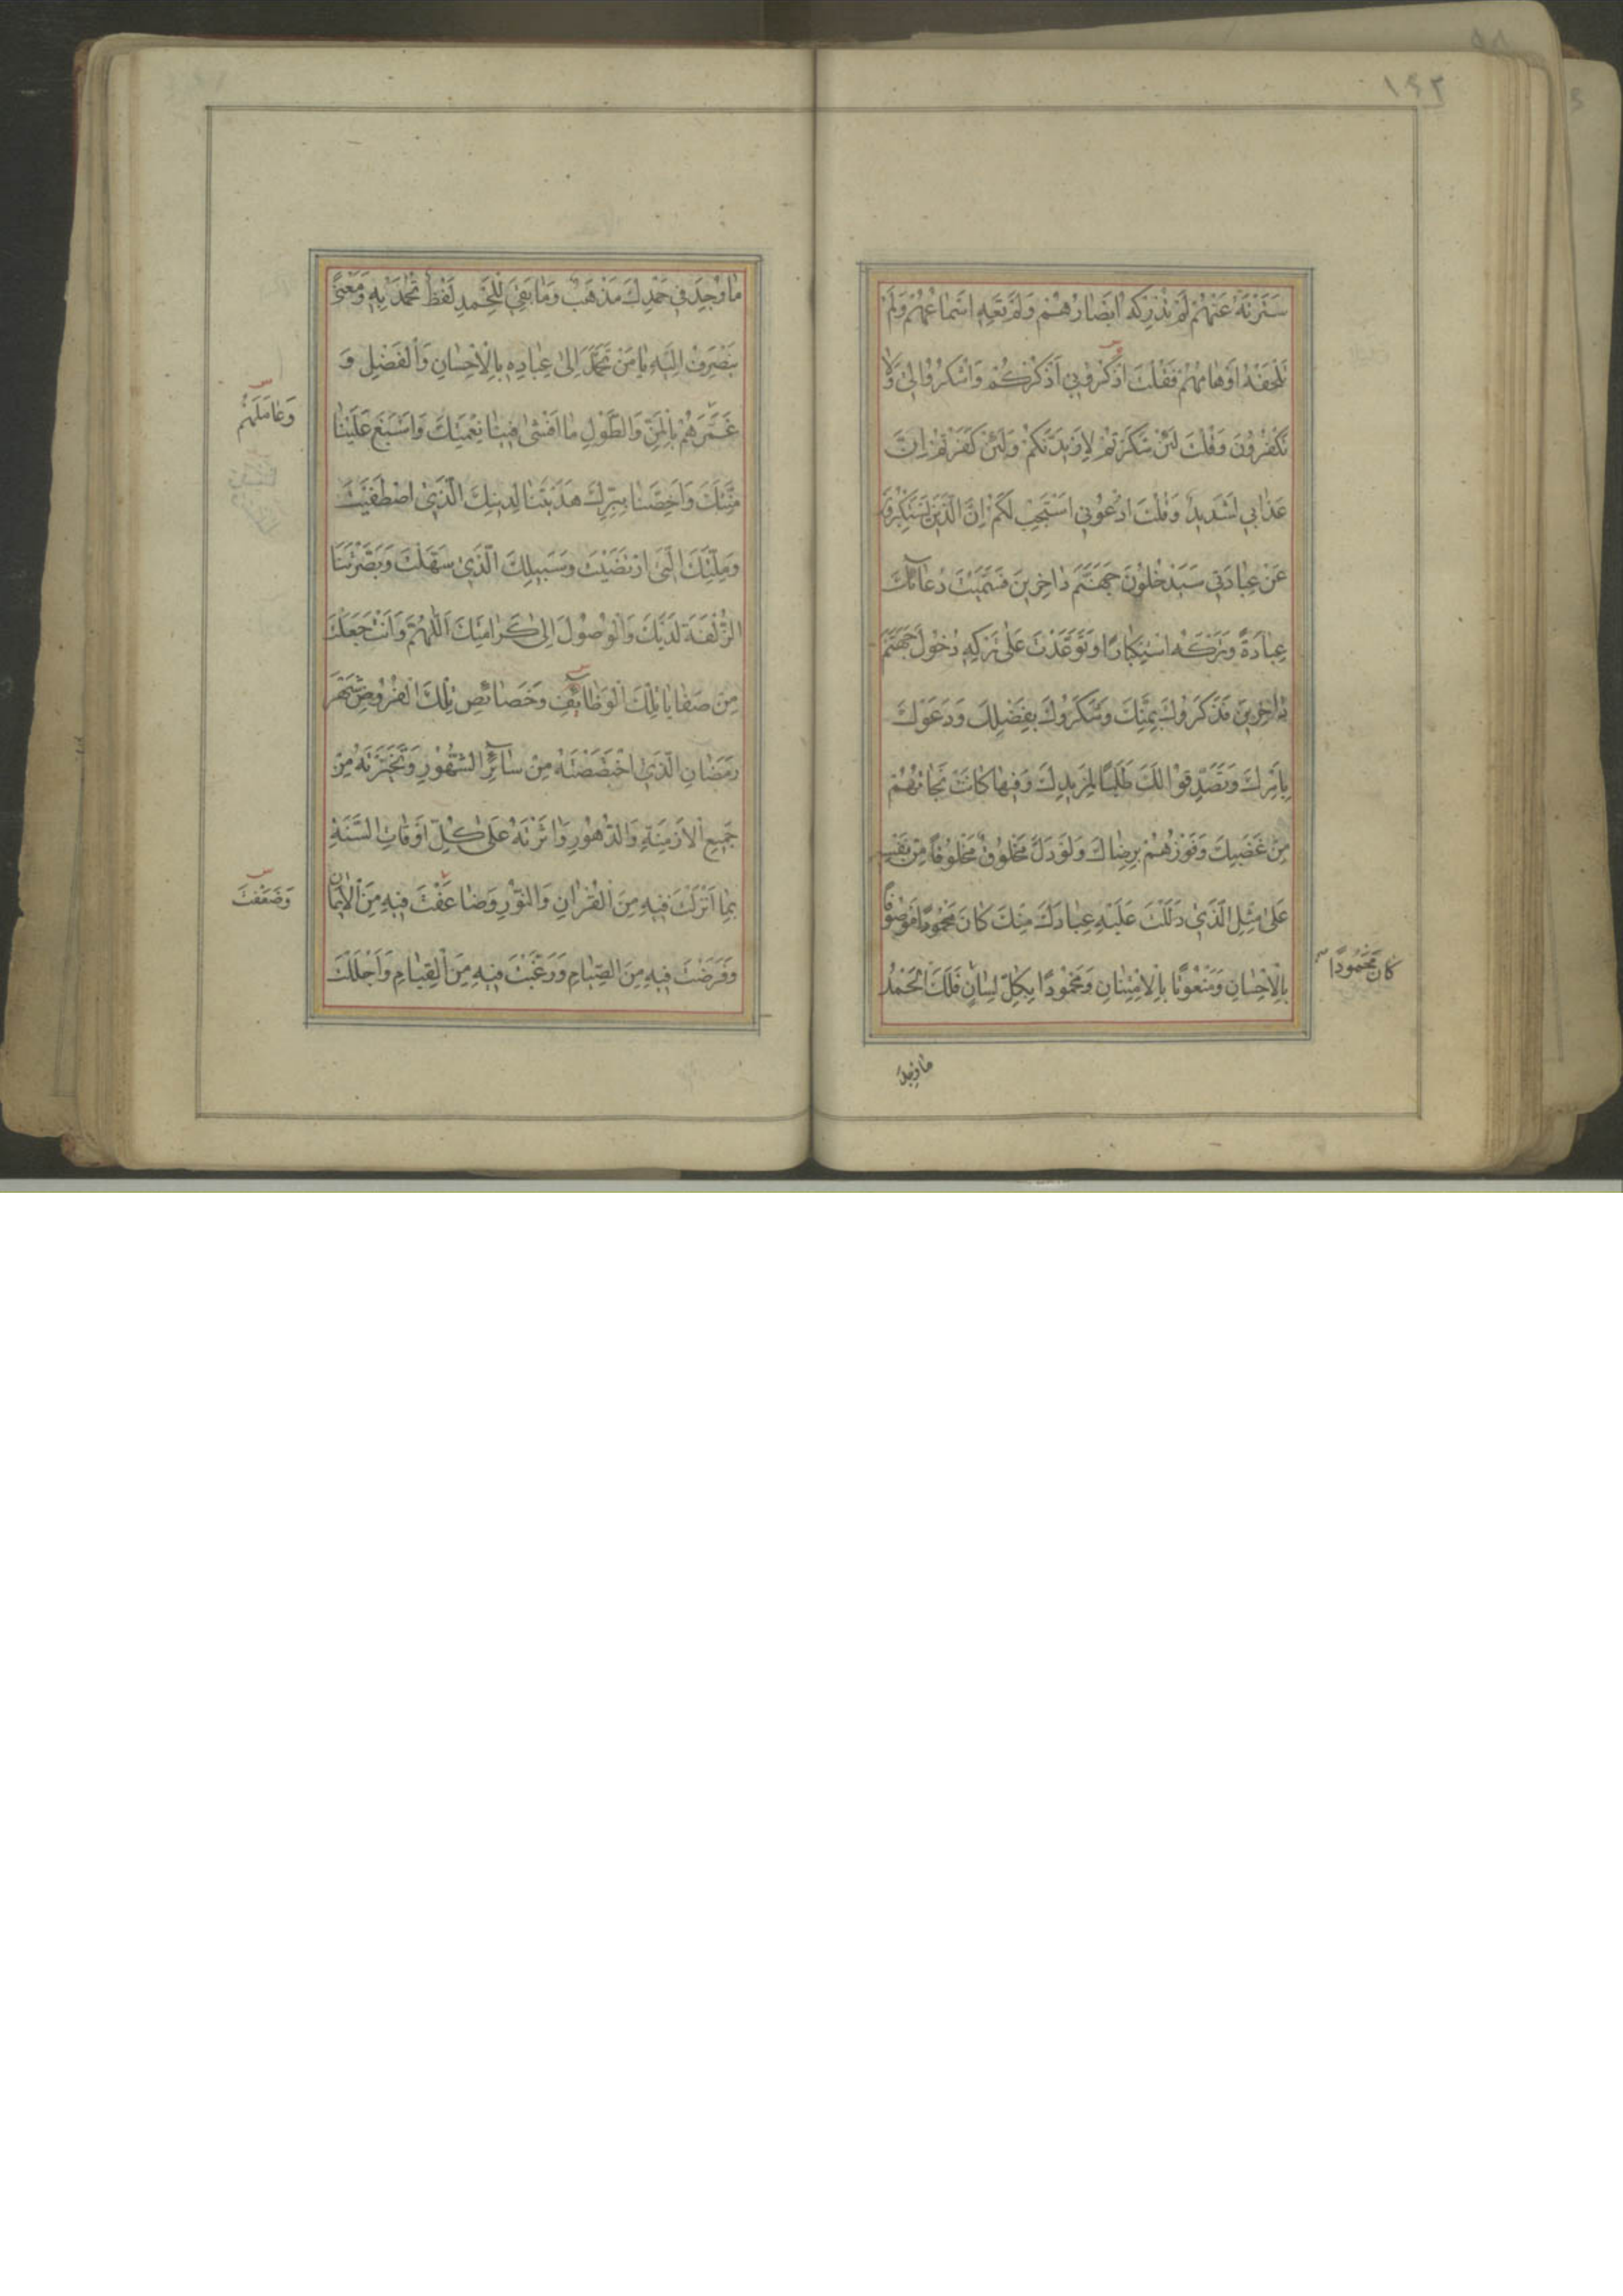 ١٤٢
سَتَرْتَهُ عَنْهُمْ لَمْ تُدْرِكْهُ اَبْصَارُهُمْ وَلَمْ تَعِهِ اَسْمَاعُهُمْ وَلَمْ
تَلْحَقْهُ اَوْهَامُهُمْ فَقُلْتَ اذْكُرُونِي اَذْكُرْكُمْ وَاشْكُرُوا لِي وَلَا
تَكْفُرُونَ وَقُلْتَ لَئِنْ شَكَرْتُمْ لَاَزِيدَنَّكُمْ وَلَئِنْ كَفَرْتُمْ اِنَّ
عَذَابِي لَشَدِيدٌ وَقُلْتَ ادْعُونِي اَسْتَجِبْ لَكُمْ اِنَّ الَّذِينَ يَسْتَكْبِرُونَ
عَنْ عِبَادَتِي سَيَدْخُلُونَ جَهَنَّمَ دَاخِرِينَ فَسَمَّيْتَ دُعَائَكَ
عِبَادَةً وَتَرْكَهُ اسْتِكْبَارًا وَتَوَعَّدْتَ عَلَى تَرْكِهِ دُخُولَ جَهَنَّمَ
دَاخِرِينَ فَذَكَرُوكَ بِمَنِّكَ وَشَكَرُوكَ بِفَضْلِكَ وَدَعَوْكَ
بِاَمْرِكَ وَتَصَدَّقُوا لَكَ طَلَبًا لِمَزِيدِكَ وَفِيهَا كَانَتْ نَجَاتُهُمْ
مِنْ غَضَبِكَ وَفَوْزُهُمْ بِرِضَاكَ وَلَوْ دَلَّ مَخْلُوقٌ مَخْلُوقًا مِنْ نَفْسِهِ
عَلَى مِثْلِ الَّذِي دَلَلْتَ عَلَيْهِ عِبَادَكَ مِنْكَ كَانَ مَحْمُودًا مَوْصُوفًا
بِالْاِحْسَانِ وَمَنْعُوتًا بِالْاِمْتِنَانِ وَمَحْمُودًا بِكُلِّ لِسَانٍ فَلَكَ الْحَمْدُ
كَانَ مَحْمُودًا
مَا وُجِدَ
مَا وُجِدَ فِي حَمْدِكَ مَذْهَبٌ وَمَا بَقِيَ لِلْحَمْدِ لَفْظٌ تُحْمَدُ بِهِ وَمَعْنًى
يَنْصَرِفُ اِلَيْهِ يَا مَنْ تَحَمَّدَ اِلَى عِبَادِهِ بِالْاِحْسَانِ وَالْفَضْلِ وَ
غَمَرَهُمْ بِالْمَنِّ وَالطَّوْلِ مَا اَفْشَى فِينَا نِعْمَتَكَ وَاَسْبَغَ عَلَيْنَا
مِنَّتَكَ وَاَخَصَّنَا بِبِرِّكَ هَدَيْتَنَا لِدِينِكَ الَّذِي اصْطَفَيْتَ
وَمِلَّتِكَ الَّتِي ارْتَضَيْتَ وَسَبِيلِكَ الَّذِي سَهَّلْتَ وَبَصَّرْتَنَا
الزُّلْفَةَ لَدَيْكَ وَالْوُصُولَ اِلَى كَرَامَتِكَ اَللَّهُمَّ وَاَنْتَ جَعَلْتَ
مِنْ صَفَايَا تِلْكَ الْوَظَائِفِ وَخَصَائِصِ تِلْكَ الْفُرُوضِ شَهْرَ
رَمَضَانَ الَّذِي اخْتَصَصْتَهُ مِنْ سَائِرِ الشُّهُورِ وَتَخَيَّرْتَهُ مِنْ
جَمِيعِ الْاَزْمِنَةِ وَالدُّهُورِ وَاٰثَرْتَهُ عَلَى كُلِّ اَوْقَاتِ السَّنَةِ
بِمَا اَنْزَلْتَ فِيهِ مِنَ الْقُرْاٰنِ وَالنُّورِ وَضَاعَفْتَ فِيهِ مِنَ الْاِيمَانِ
وَفَرَضْتَ فِيهِ مِنَ الصِّيَامِ وَرَغَّبْتَ فِيهِ مِنَ الْقِيَامِ وَاَجْلَلْتَ
وَعَامَلَهُمْ
وَضَعَّفْتَ